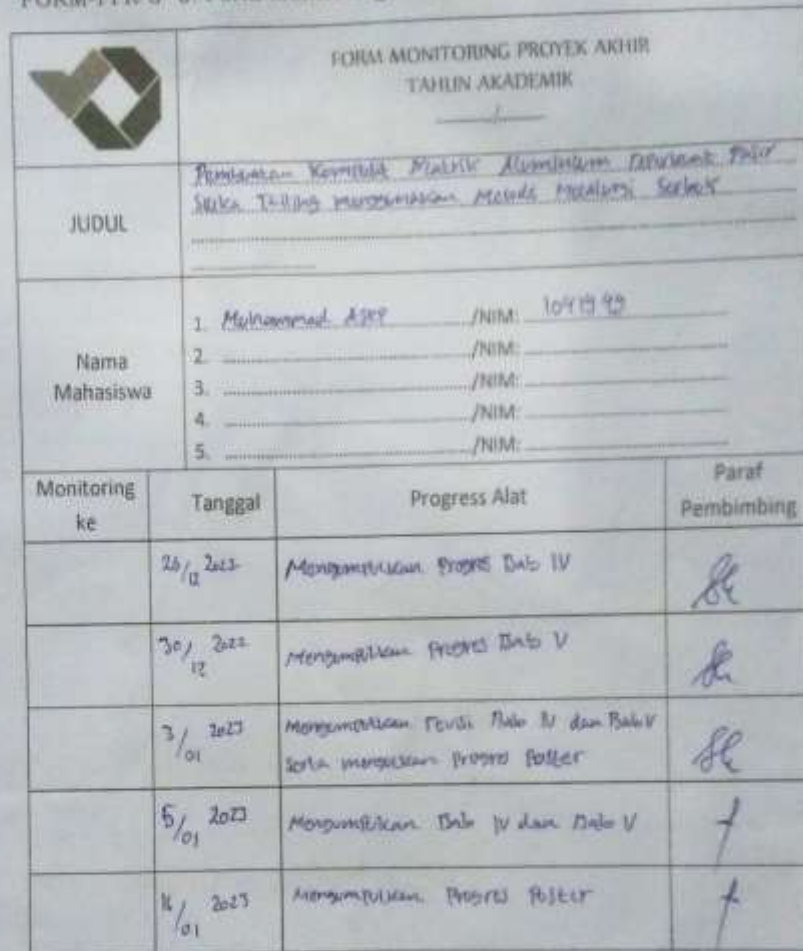 FORM MONITORING PROYEK AKHIR
TAHUN AKADEMIK
____/____
JUDUL
Pembuatan Komposit Matrik Aluminium Pasir
Silika Tailing menggunakan Metode Metalurgi Serbuk
Nama
Mahasiswa
1. Muhammad /NIM: 
2. /NIM:
3. /NIM:
4. /NIM:
5. /NIM:
Monitoring
ke
Tanggal
Progress Alat
Paraf
Pembimbing
Mengumpulkan Progres Bab IV
30/12 2022 Mengumpulkan Progres Bab V
3/01 2023 Mengumpulkan revisi Bab IV dan Bab V
serta Progres Poster
5/01 2023 Mengumpulkan Bab IV dan Bab V
/01 2023 Mengumpulkan Progres Poster